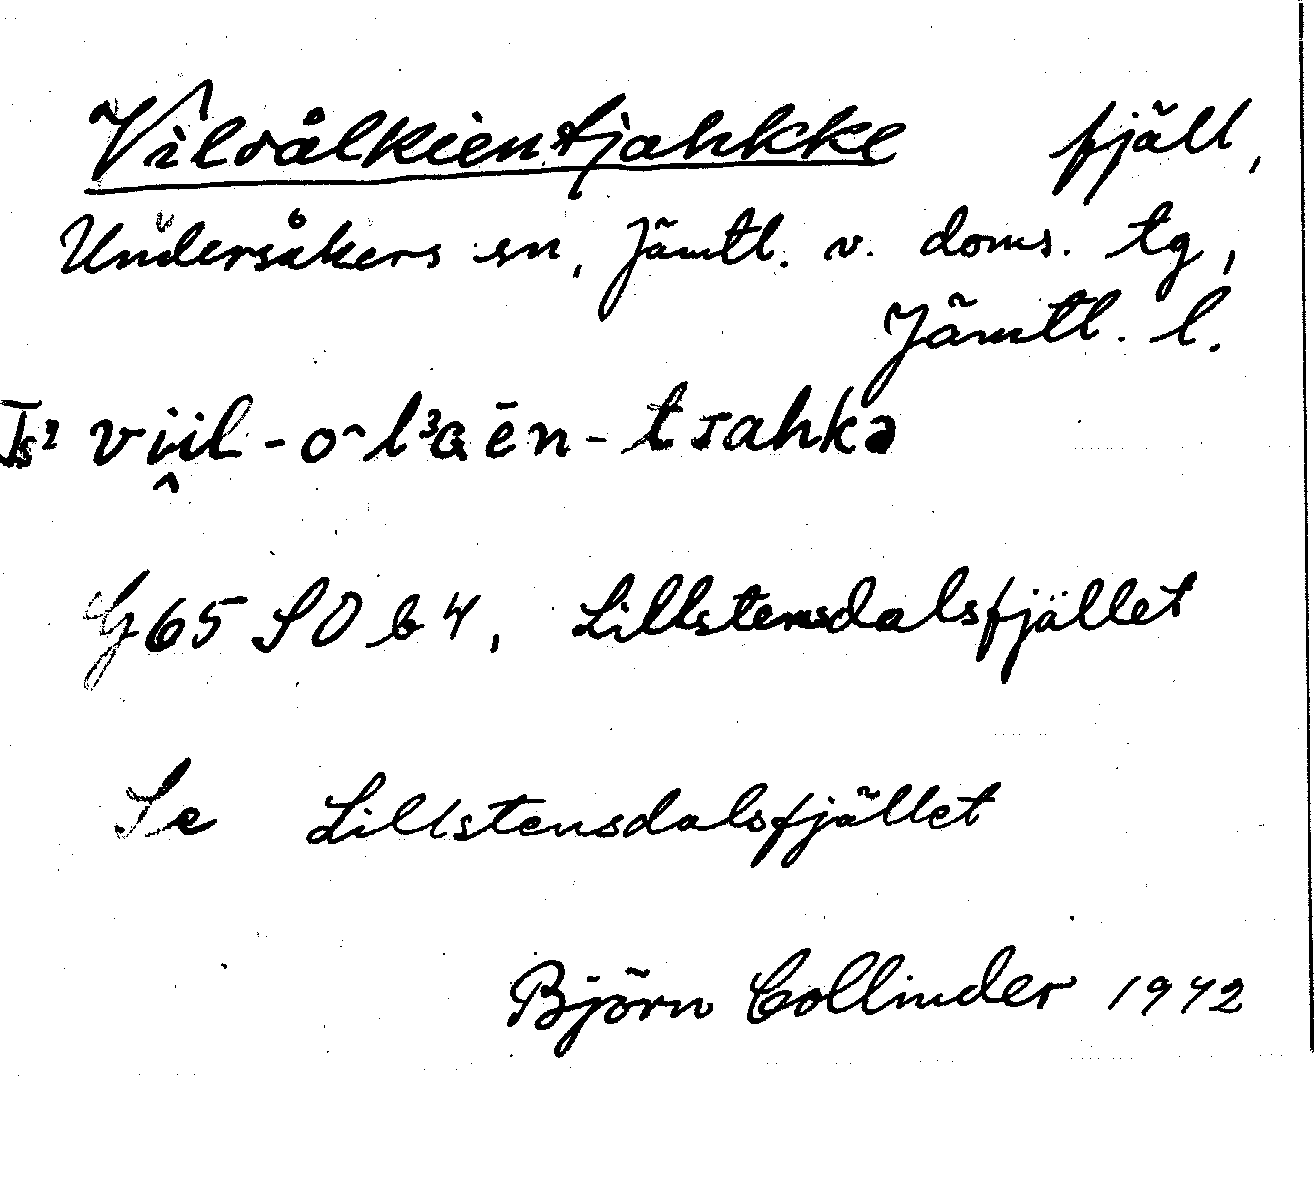 Vilsålkientjahkke fjäll,
Undersåkers sn, Jämtl. v. doms. tg,
Jämtl. l.
G65 SO b4, Lillstensdalsfjället
Se Lillstensdalsfjället
Björn Collinder 1942